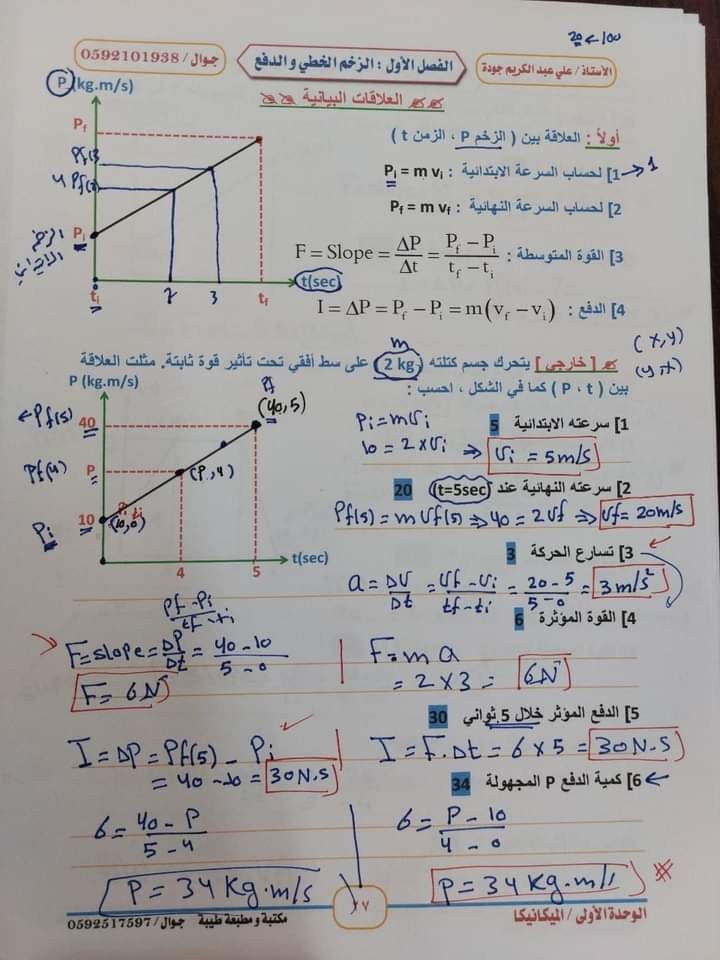 20 ← 100
الأستاذ / علي عبد الكريم جودة
الفصل الأول : الزخم الخطي والدفع
جوال / 0592101938
العلاقات البيانية
أولاً : العلاقة بين ( الزخم P ، الزمن t )
1] لحساب السرعة الابتدائية : Pi = m vi → 1
2] لحساب السرعة النهائية : Pf = m vf
3] القوة المتوسطة : F = Slope = ΔP/Δt = (Pf − Pi)/(tf − ti)
4] الدفع : I = ΔP = Pf − Pi = m(vf − vi)
P (kg.m/s)
Pf
Pf(3)
4 Pf(2)
Pi
الزخم
الابتدائي
ti
2
3
tf
t(sec)
(x,y)
(y,x)
m
[ خارجي ] يتحرك جسم كتلته (2 kg) على سطح أفقي تحت تأثير قوة ثابتة. مثلت العلاقة
بين ( P ، t ) كما في الشكل ، احسب :
P (kg.m/s)
Pf
(40,5)
← Pf(5)
40
Pf(4)
P
(P,4)
Pi
10
Pi ti
(10,0)
4
5
t(sec)
1] سرعته الابتدائية 5
Pi = mvi
10 = 2×vi ⇒ vi = 5m/s
2] سرعته النهائية عند (t=5sec) 20
Pf(5) = m vf(5) ⇒ 40 = 2vf ⇒ vf = 20m/s
3] تسارع الحركة 3
a = Δv/Δt = (vf - vi)/(tf - ti) = (20 - 5)/(5 - 0) = 3m/s²
4] القوة المؤثرة 6
F = ma
= 2 × 3 = 6N
(Pf - Pi)/(tf - ti)
F = slope = ΔP/Δt = (40 - 10)/(5 - 0)
F = 6N
5] الدفع المؤثر خلال 5 ثواني 30
I = F.Δt = 6 × 5 = 30N.s
I = ΔP = Pf(5) - Pi
= 40 - 10 = 30N.s
6] كمية الدفع P المجهولة 34
6 = (P - 10)/(4 - 0)
P = 34 kg.m/s
6 = (40 - P)/(5 - 4)
P = 34 kg.m/s
الوحدة الأولى / الميكانيكا
٢٧
مكتبة و مطبعة طيبة جوال / 0592517597